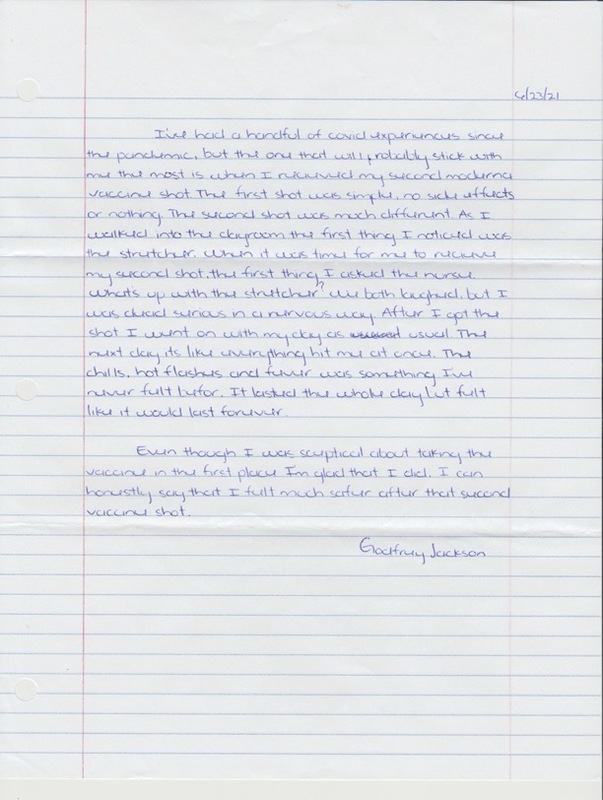 6/23/21
I've had a handful of covid experiences since
the pandemic, but the one that will probably stick with
me the most is when I recieved my second moderna
vaccine shot. The first shot was simple, no side effects
or nothing. The second shot was much different. As I
walked into the dayroom the first thing I noticed was
the stretcher. When it was time for me to recieve
my second shot, the first thing I asked the nurse
what's up with the stretcher? We both laughed, but I
was dead serious in a nervous way. After I got the
shot I went on with my day as usual. The
next day its like everything hit me at once. The
chills, hot flashes and fever was something I've
never felt befor. It lasted the whole day but felt
like it would last forever.
Even though I was sceptical about taking the
vaccine in the first place I'm glad that I did. I can
honestly say that I felt much safer after that second
vaccine shot.
Godfrey Jackson